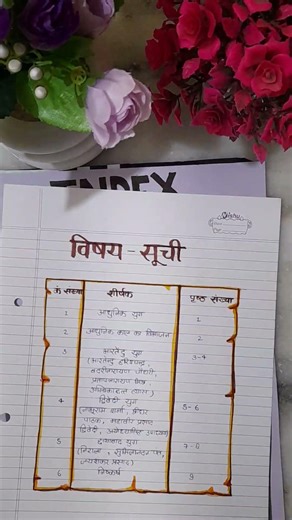 INDEX
Date
विषय-सूची
क्र० संख्या शीर्षक पृष्ठ संख्या
1 आधुनिक युग 1
2 आधुनिक काल का विभाजन 2
3 भारतेंदु युग 3-4
(भारतेन्दु हरिश्चन्द्र,
बदरीनारायण चौधरी,
प्रतापनारायण मिश्र
अम्बिकादत्त व्यास)
4 द्विवेदी युग 5-6
(नाथूराम शर्मा, श्रीधर
पाठक, महावीर प्रसाद
द्विवेदी, अयोध्यासिंह उपाध्याय)
5 छायावाद युग 7-8
(निराला, सुमित्रानंदन पंत,
जयशंकर प्रसाद)
6 निष्कर्ष 9